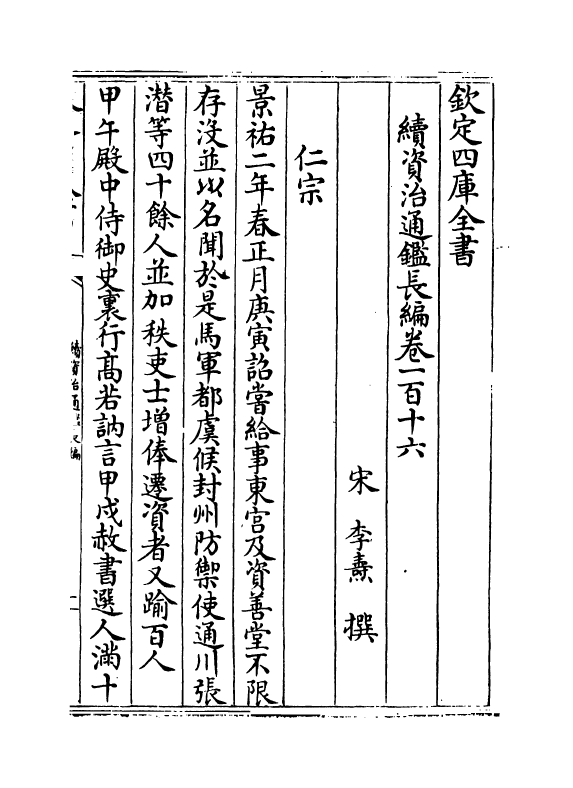 欽定四庫全書
續資治通鑑長編卷一百十六
宋 李燾 撰
仁宗
景祐二年春正月庚寅詔嘗給事東宫及資善堂不限
存沒並以名聞於是馬軍都虞候封州防禦使通川張
潛等四十餘人並加秩吏士增俸遷資者又踰百人
甲午殿中侍御史裏行髙若訥言甲戌赦書選人滿十